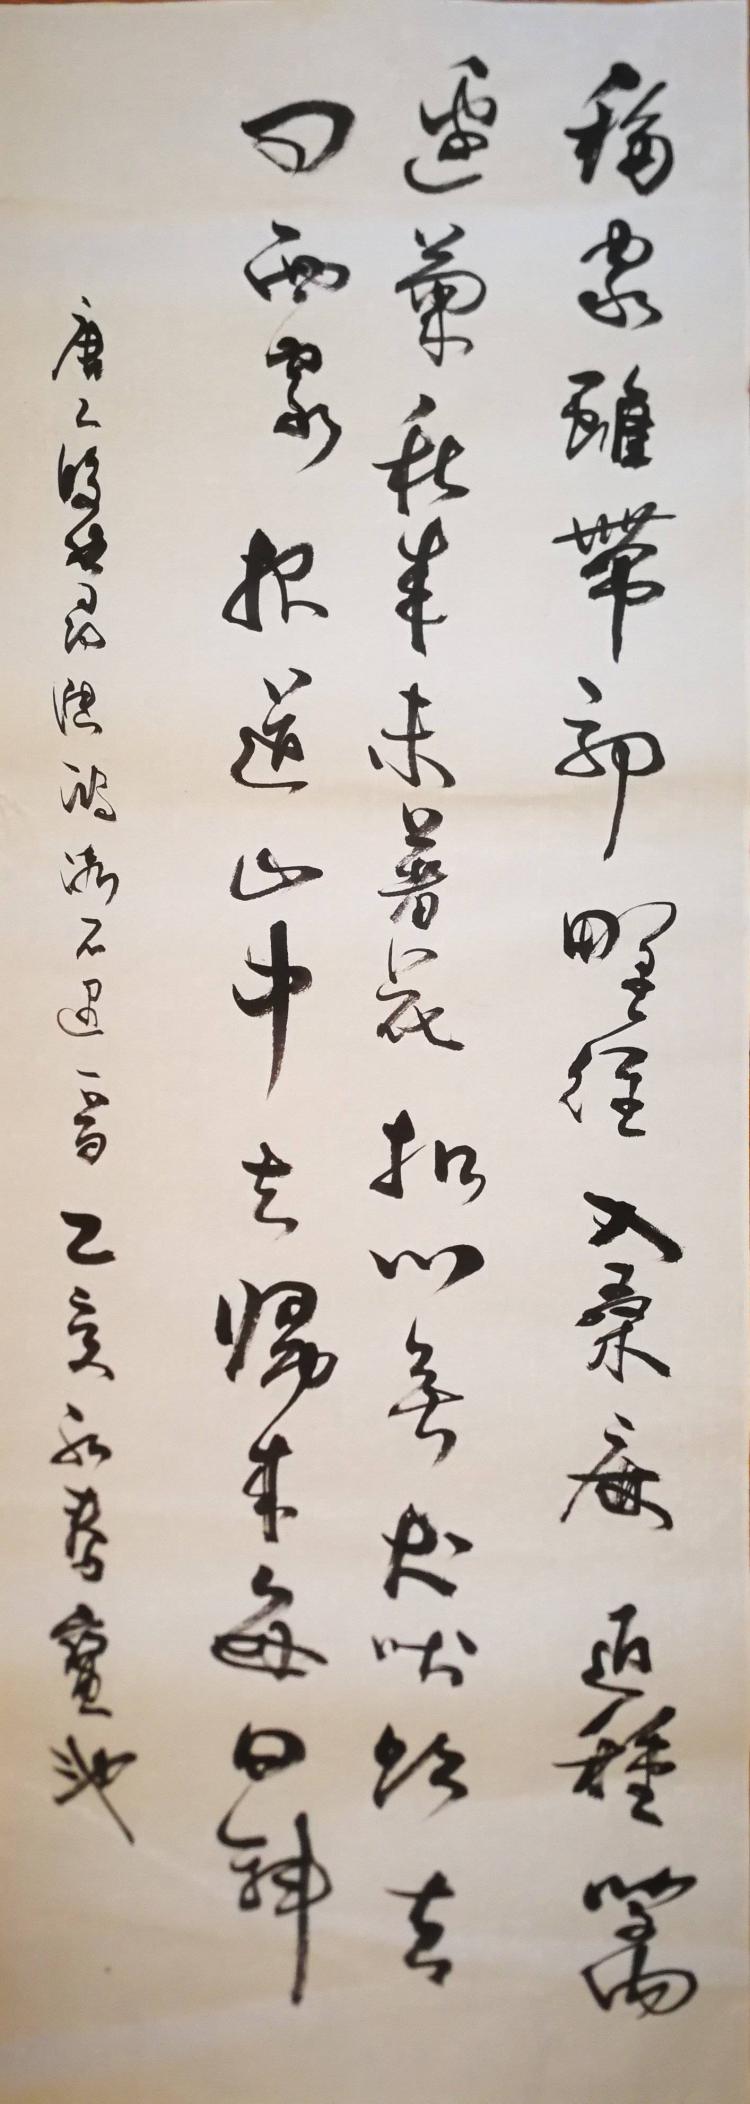 移家雖帶郭野徑入桑麻近種籬
邊菊秋來未著花扣門無犬吠欲去
問西家報道山中去歸來每日斜
唐人皎然尋陸鴻漸不遇一首乙亥永春寶